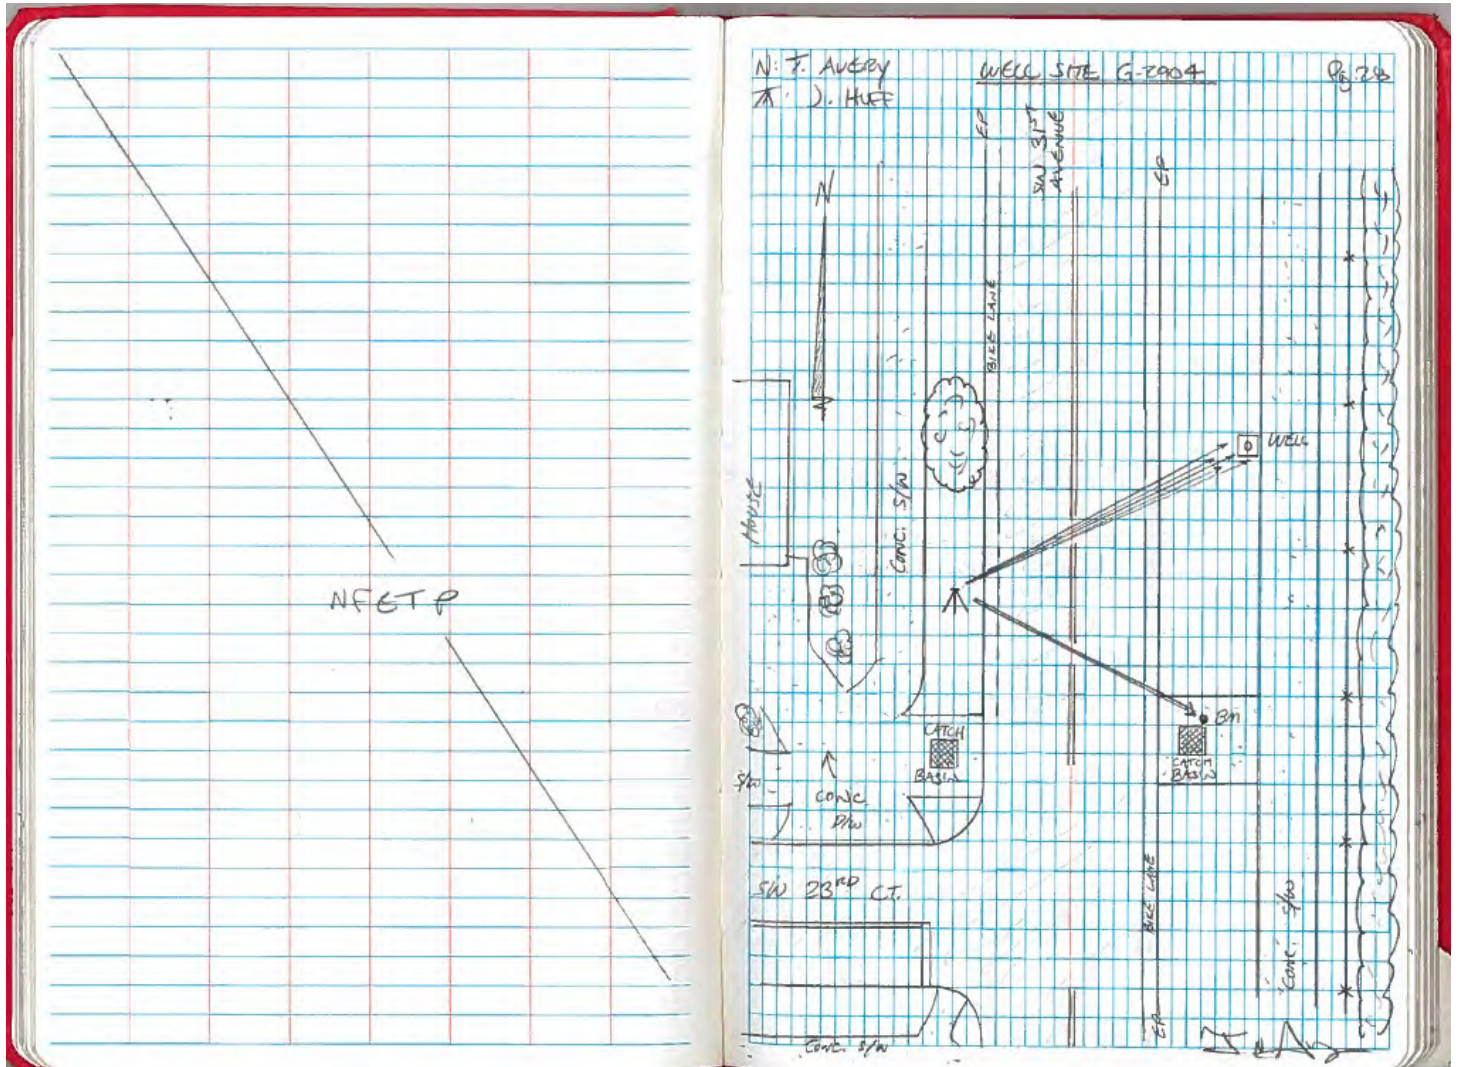 NFETP
N: T. AVERY
WELL SITE G-2904
Pg. 28
⊼: J. HUFF
EP
SW 31ST
AVENUE
EP
N
BIKE LANE
WELL
HOUSE
CONC. S/W
BM
CATCH
BASIN
CATCH
BASIN
S/W
CONC
D/W
SW 23RD CT.
BIKE LANE
CONC. S/W
EP
CONC. S/W